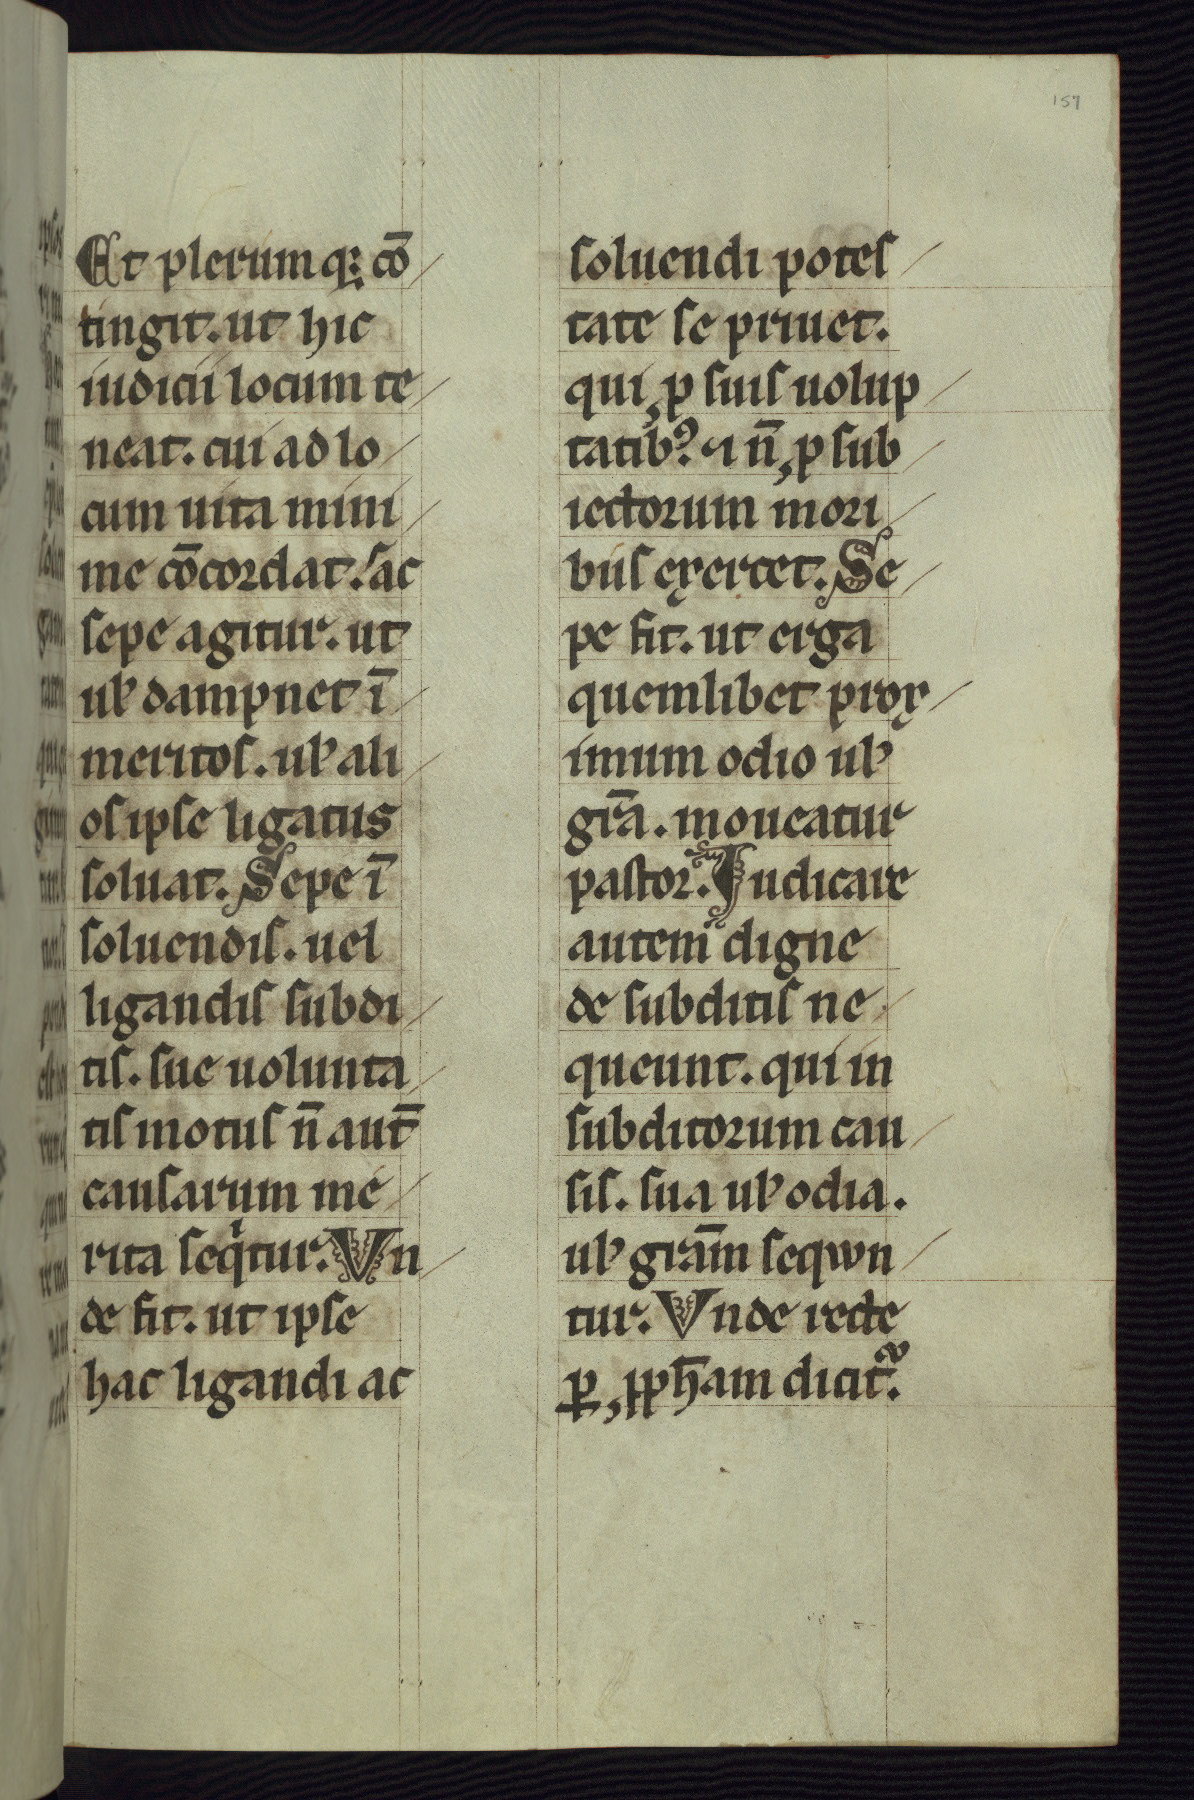 157
Et plerumq; cō
tingit. ut hic
iudicii locum te
neat. cui ad lo
cum uita mini
me cōcordat. ac
sepe agitur. ut
uł dampnet ī
meritos. uł ali
os ipse ligatus
soluat. Sepe ī
soluendis. uel
ligandis subdi
tis. sue uolunta
tis motus n̄ aut̄
causarum me
rita seqͥtur. Vn
de fit. ut ipse
hac ligandi ac
soluendi potes
tate se priuet.
qui ꝓ suis uolup
tatibꝰ. ⁊ n̄ ꝓ sub
iectorum mori
bus exercet. Se
pe fit. ut erga
quemlibet prox
imum odio uł
gr̄a. moueatur
pastor. Iudicare
autem digne
de subditis ne
queunt. qui in
subditorum cau
sis. sua uł odia.
uł grām sequn
tur. Vnde recte
ꝑ ꝓph̄am dicit᷑.